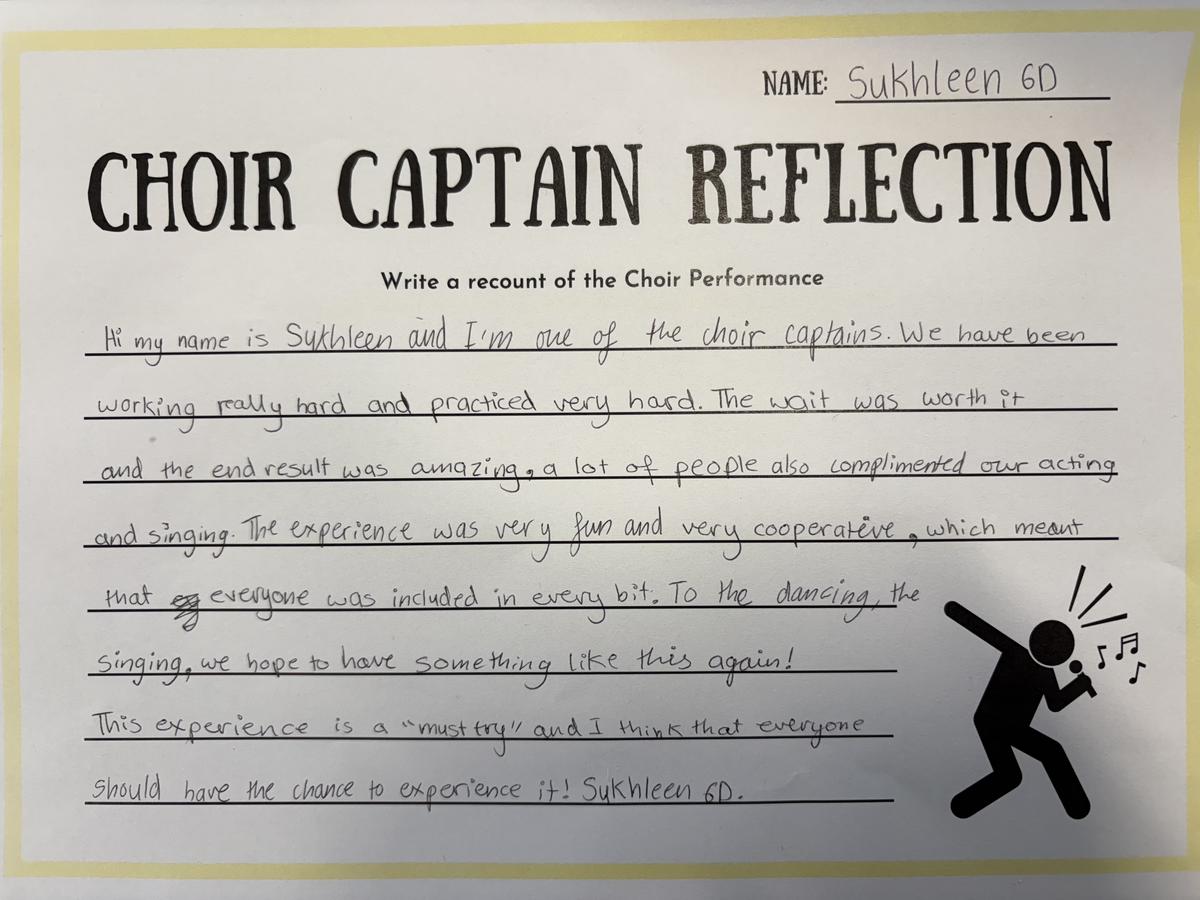 NAME: Sukhleen 6D
CHOIR CAPTAIN REFLECTION
Write a recount of the Choir Performance
Hi my name is Sukhleen and I'm one of the choir captains. We have been
working really hard and practiced very hard. The wait was worth it
and the end result was amazing, a lot of people also complimented our acting
and singing. The experience was very fun and very cooperative, which meant
that everyone was included in every bit. To the dancing, the
singing, we hope to have something like this again!
This experience is a "must try" and I think that everyone
should have the chance to experience it! Sukhleen 6D.